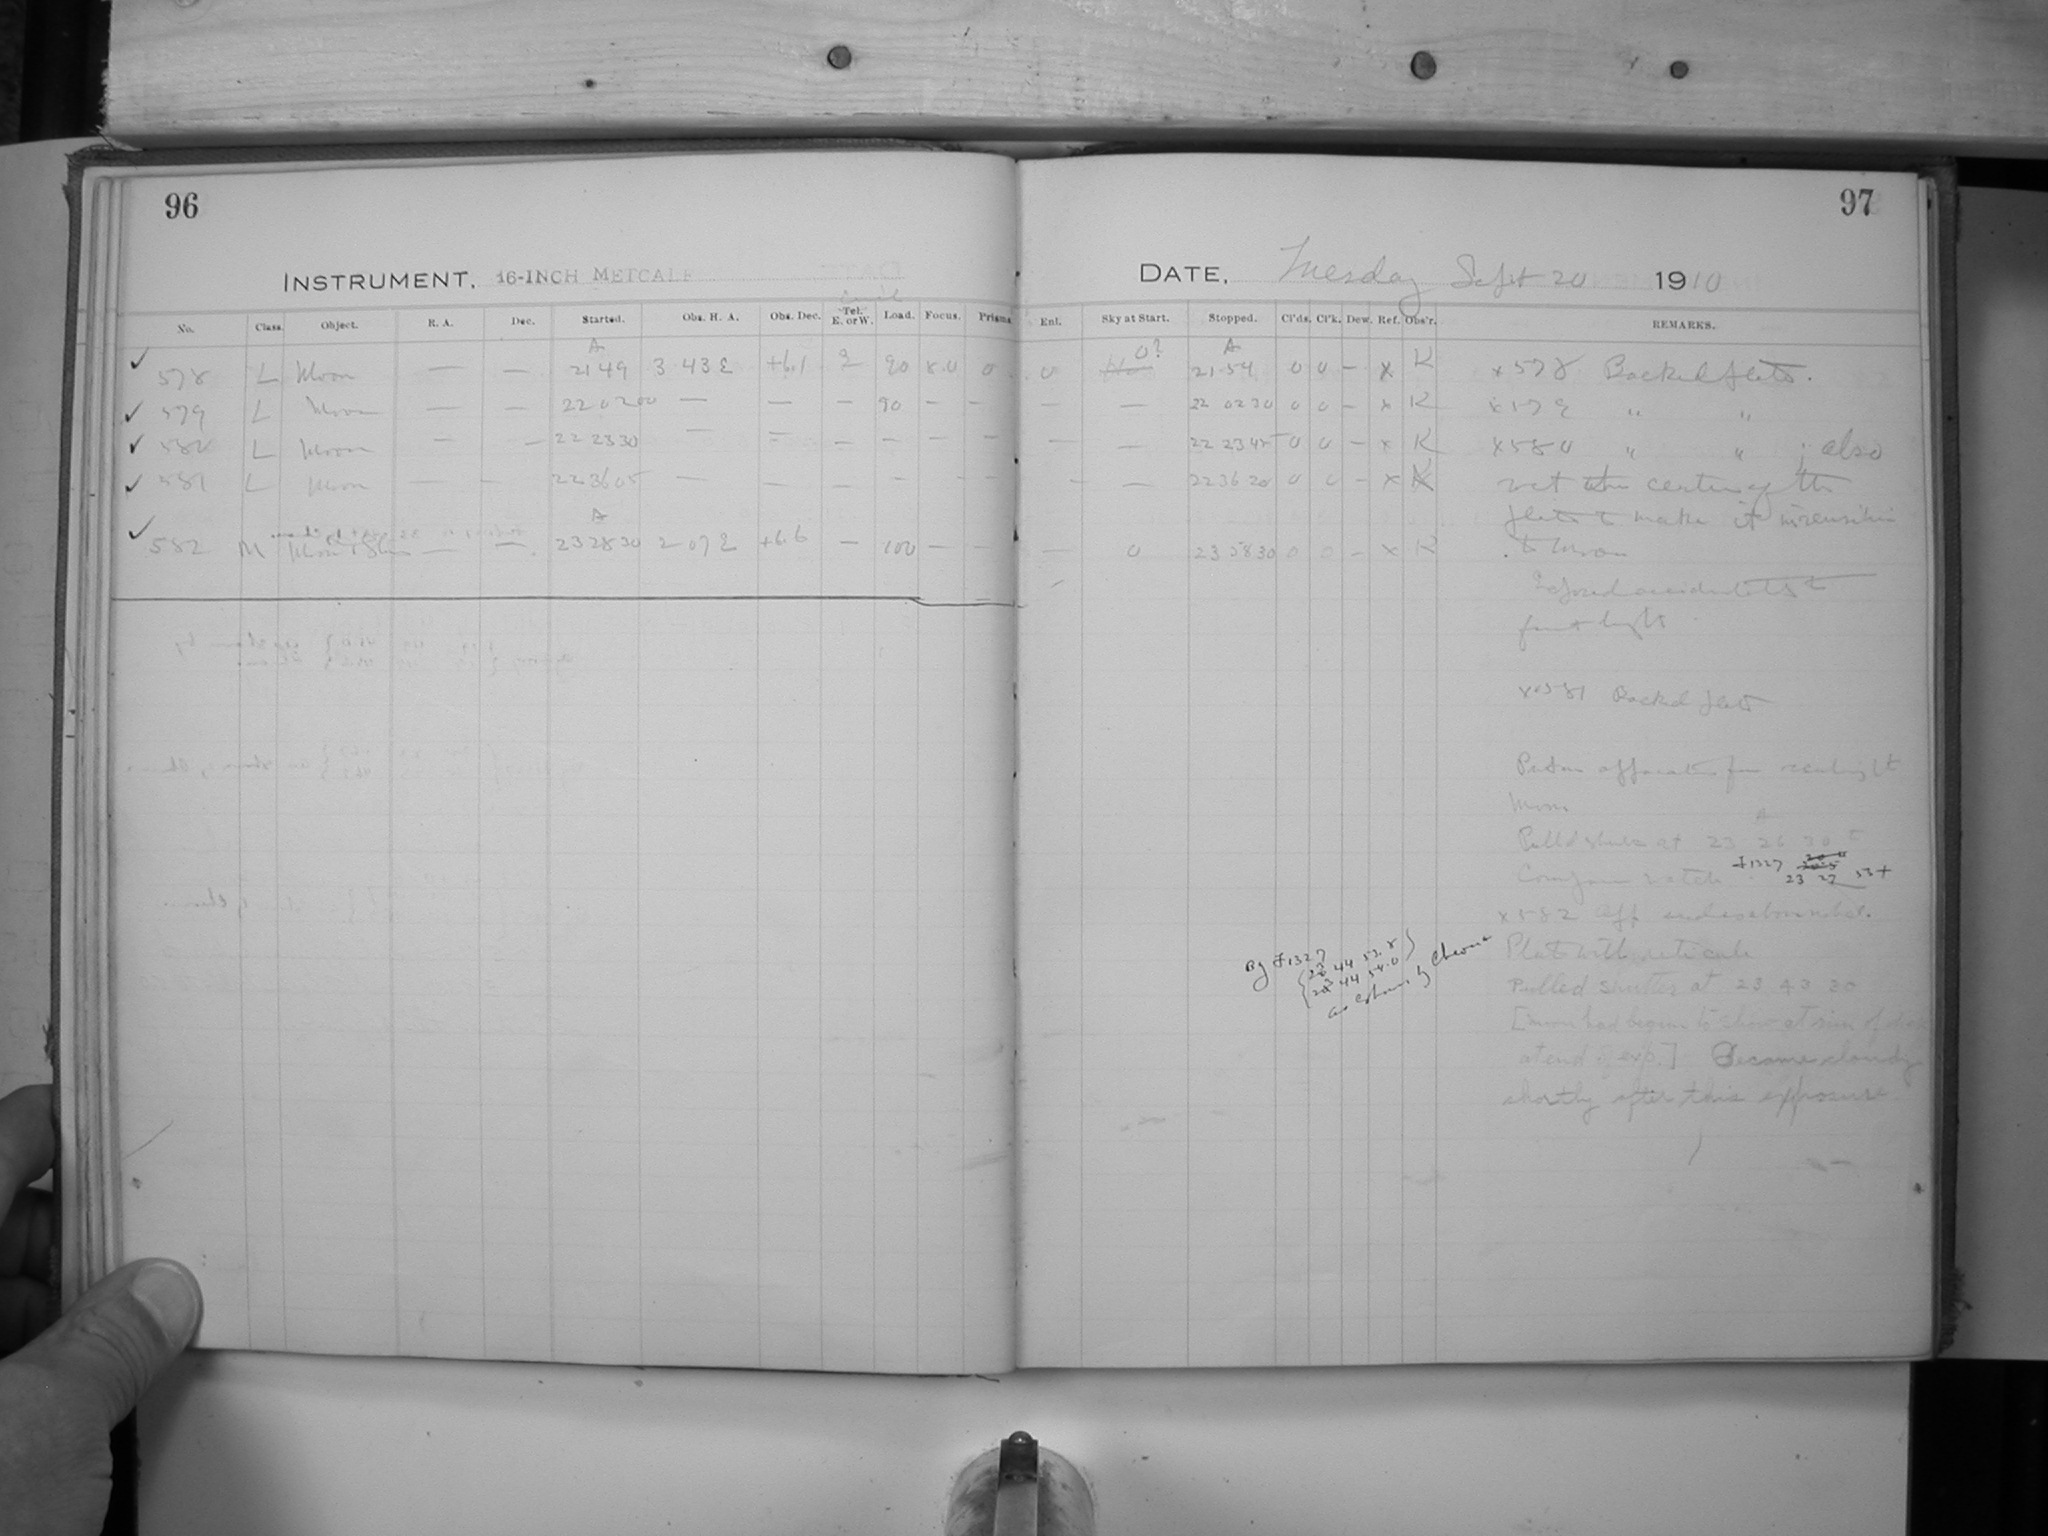 96
INSTRUMENT, 16-INCH METCALF
No. Class. Object. R. A. Dec. Started. Obs. H. A. Obs. Dec. Tel. E. or W. Load. Focus. Prisms
A
✓ 578 L Moon — — 21 49 3 43 E +6.1 E 90 8.0 0
✓ 579 L Moon — — 22 02 00 — — — 90 — —
✓ 580 L Moon — — 22 23 30 — — — — — —
✓ 581 L Moon — — 22 36 05 — — — — — —
A
✓ 582 M Moon + Stars — — 23 28 30 2 07 E +6.6 — 100 — —
97
DATE, Tuesday Sept 20 1910
Enl. Sky at Start. Stopped. Cl'ds. Cl'k. Dew. Ref. Obs'r. REMARKS.
0? A
0 21 54 0 0 — x K x 578 Backed plate.
— — 22 02 30 0 0 — x K x 579 " "
— — 22 23 45 0 0 — x K x 580 " " ; also
— — 22 36 20 0 0 — x K wet the center of the
plate to make it insensitive
— 0 23 58 30 0 0 — x K to Moon
Exposed accidentally to
faint light
x 581 Backed plate
Put on apparatus for
Moon.
A
Pulled shutter at 23 26 30
Compare watch #1327 23 27 53+
x 582 App. and
Plate with reticule
Pulled shutter at 23 43 30
[moon had begun to show at rim of disc
at end of exp.] Became cloudy
shortly after this exposure.
By #1327
{ 23 44 53.8 }
{ 23 44 54.0 }
as shown by Chron